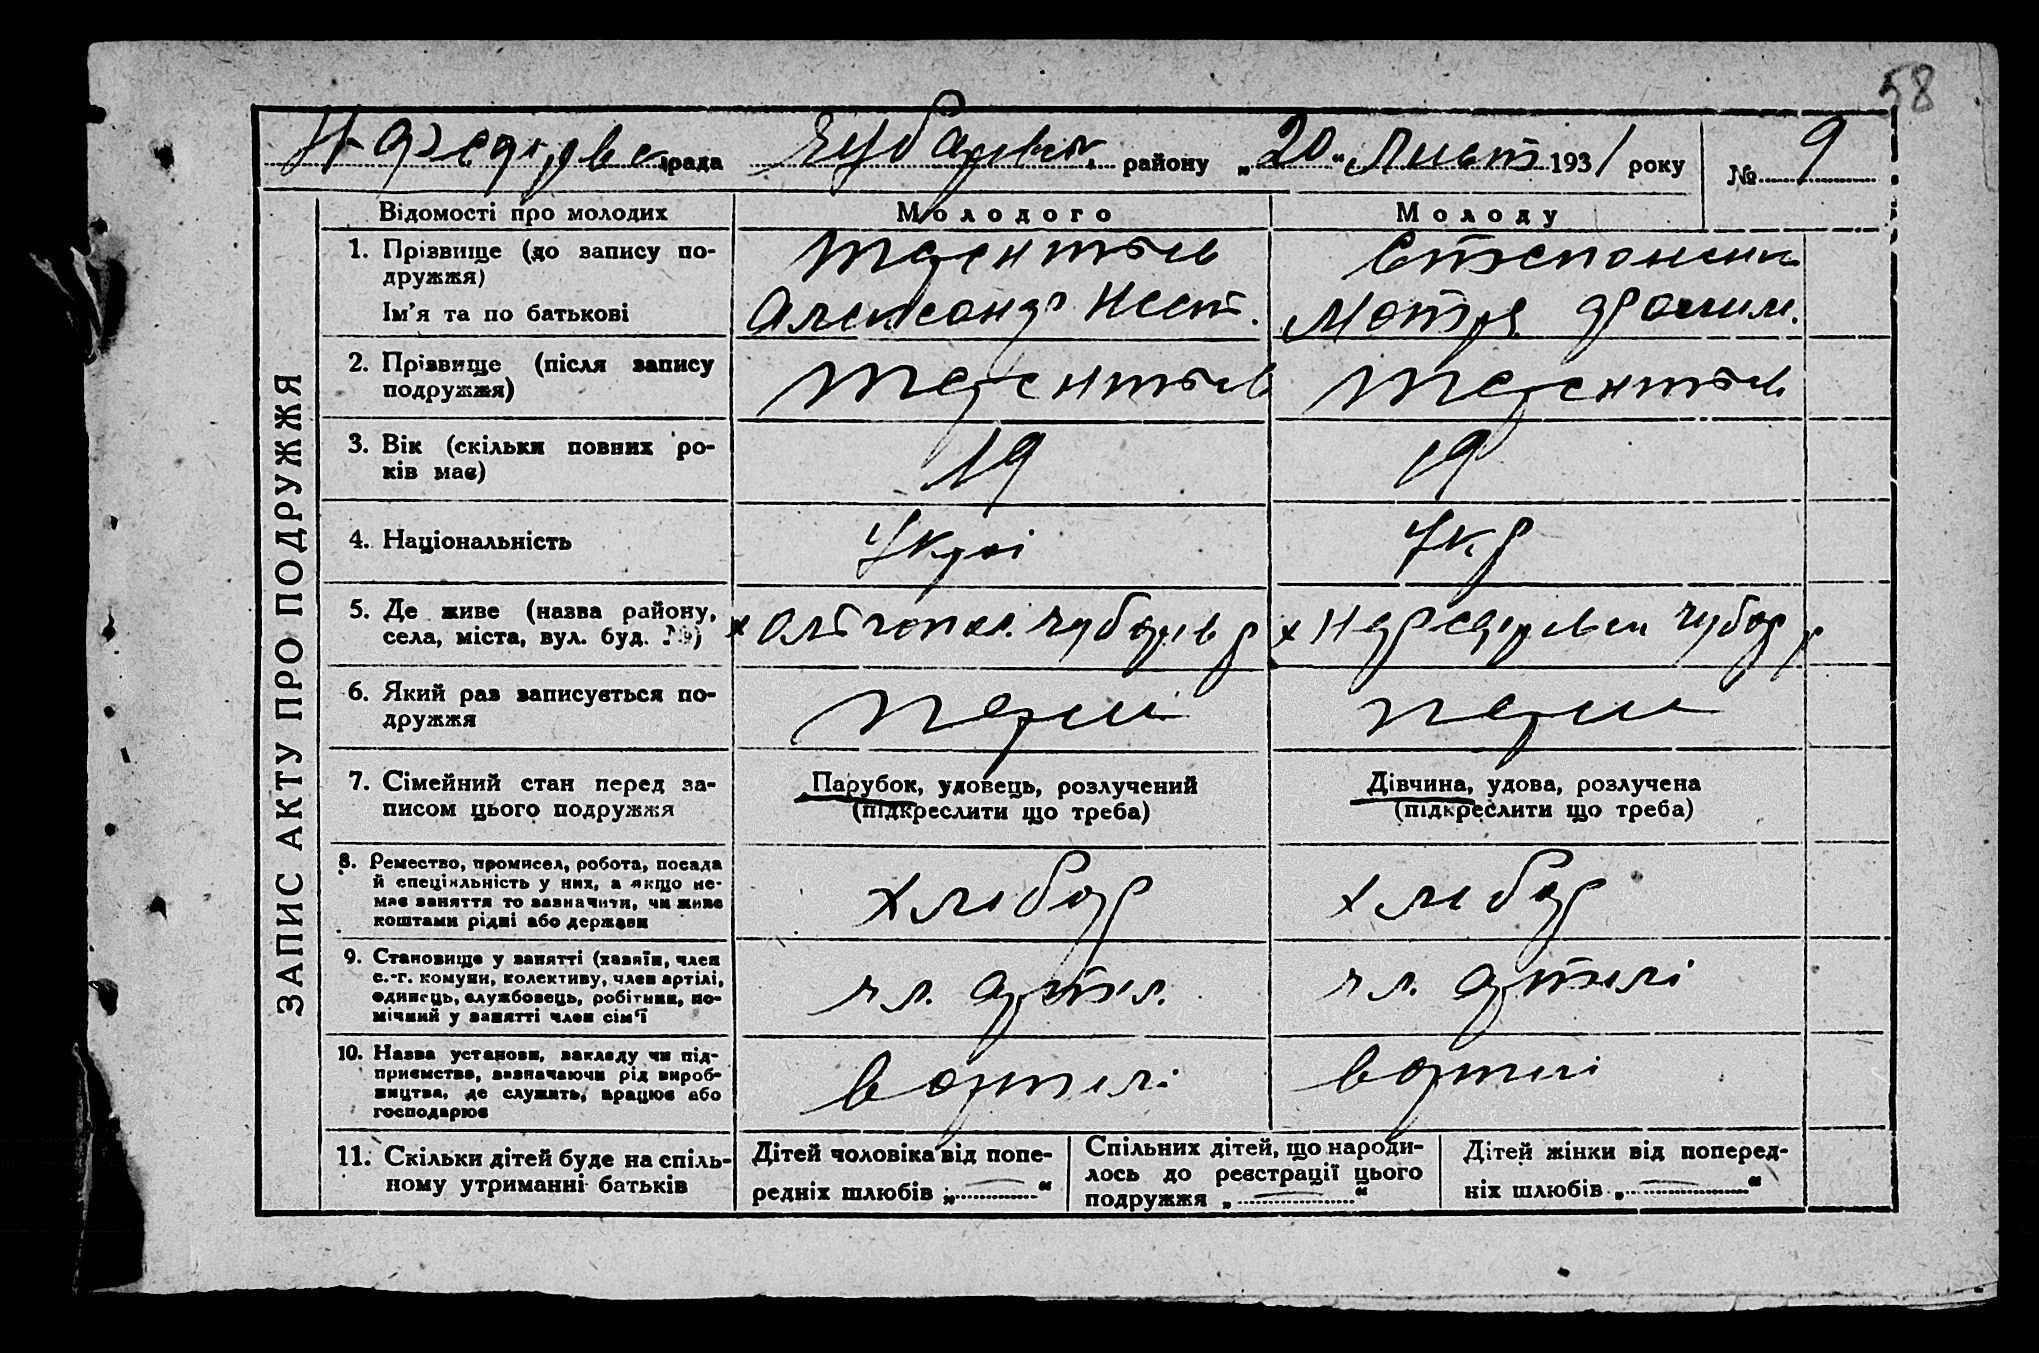 58
рада Чубарівськ. району „20“ Лют 1931 року № 9
ЗАПИС АКТУ ПРО ПОДРУЖЖЯ
Відомості про молодих Молодого Молоду
1. Прізвище (до запису по-
дружжя)
Терентьев
Ім'я та по батькові
Александр Нест. Мотря
2. Прізвище (після запису
подружжя)
Терентьев Терентьев
3. Вік (скільки повних ро-
ків має)
19 19
4. Національність
Украі Укр
5. Де живе (назва району,
села, міста, вул. буд. №)
х Чубарів р х Чубар р
6. Який раз записується по-
дружжя
перши перши
7. Сімейний стан перед за-
писом цього подружжя
Парубок, удовець, розлучений
(підкреслити що треба)
Дівчина, удова, розлучена
(підкреслити що треба)
8. Ремество, промисел, робота, посада
й спеціяльність у них, а якщо не-
має заняття то зазначити, чи живе
коштами рідні або держави
хлібор хлібор
9. Становище у занятті (хазяїн, член
с.-г. комуни, колективу, член артілі,
одинець, службовець, робітник, по-
мічний у занятті член сім'ї
чл. артіл. чл. артілі
10. Назва установи, закладу чи під-
приємства, зазначаючи рід вироб-
ництва, де служить, працює або
господарює
в артілі в артілі
11. Скільки дітей буде на спіль-
ному утриманні батьків
Дітей чоловіка від попе-
редніх шлюбів „—“
Спільних дітей, що народи-
лось до реєстрації цього
подружжя „—“
Дітей жінки від поперед-
ніх шлюбів „—“